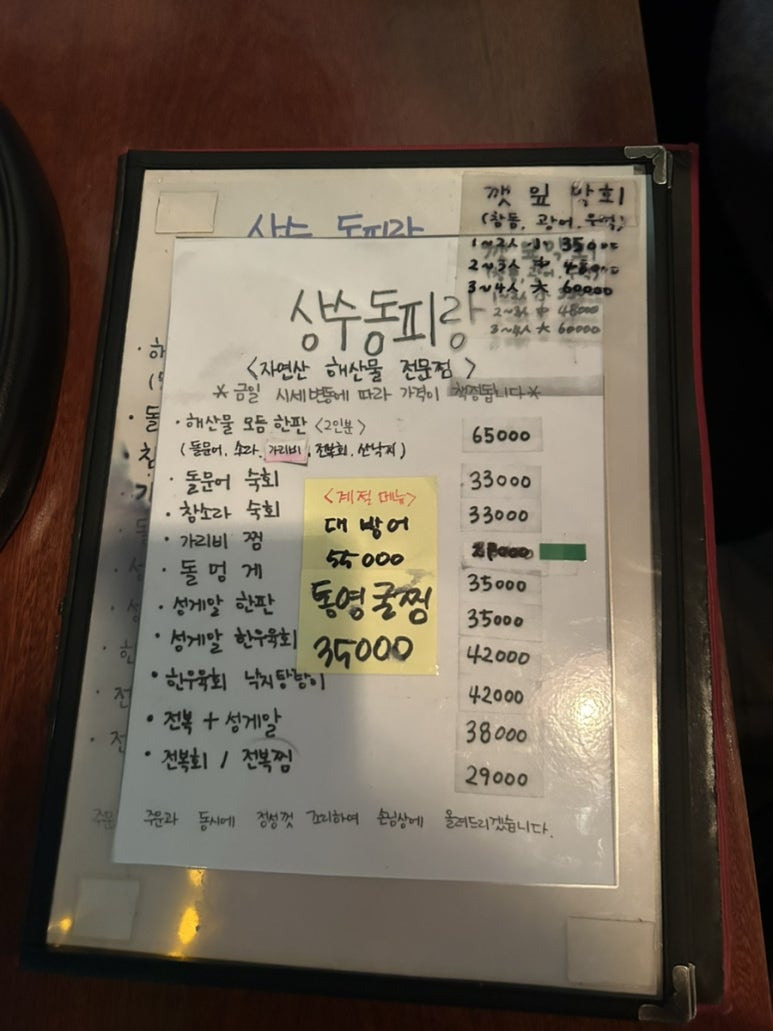 깻잎 막회
(참돔, 광어, 우럭)
1~2人 小 35000
2~3人 中 48000
3~4人 大 60000
2~3人 中 48000
3~4人 大 60000
상수동피랑
상수동피랑
<자연산 해산물 전문점>
*금일 시세변동에 따라 가격이 책정됩니다*
·해산물 모듬 한판 <2인분> 65000
(돌문어, 소라, 가리비, 전복회, 산낙지)
·돌문어 숙회 33000
·참소라 숙회 33000
·가리비 찜
·돌멍게 35000
·성게알 한판 35000
·성게알 한우육회 42000
·한우육회 낙지탕탕이 42000
·전복+성게알 38000
·전복회 / 전복찜 29000
<계절메뉴>
대방어
55000
통영굴찜
35000
주문과 동시에 정성껏 조리하여 손님상에 올려드리겠습니다.